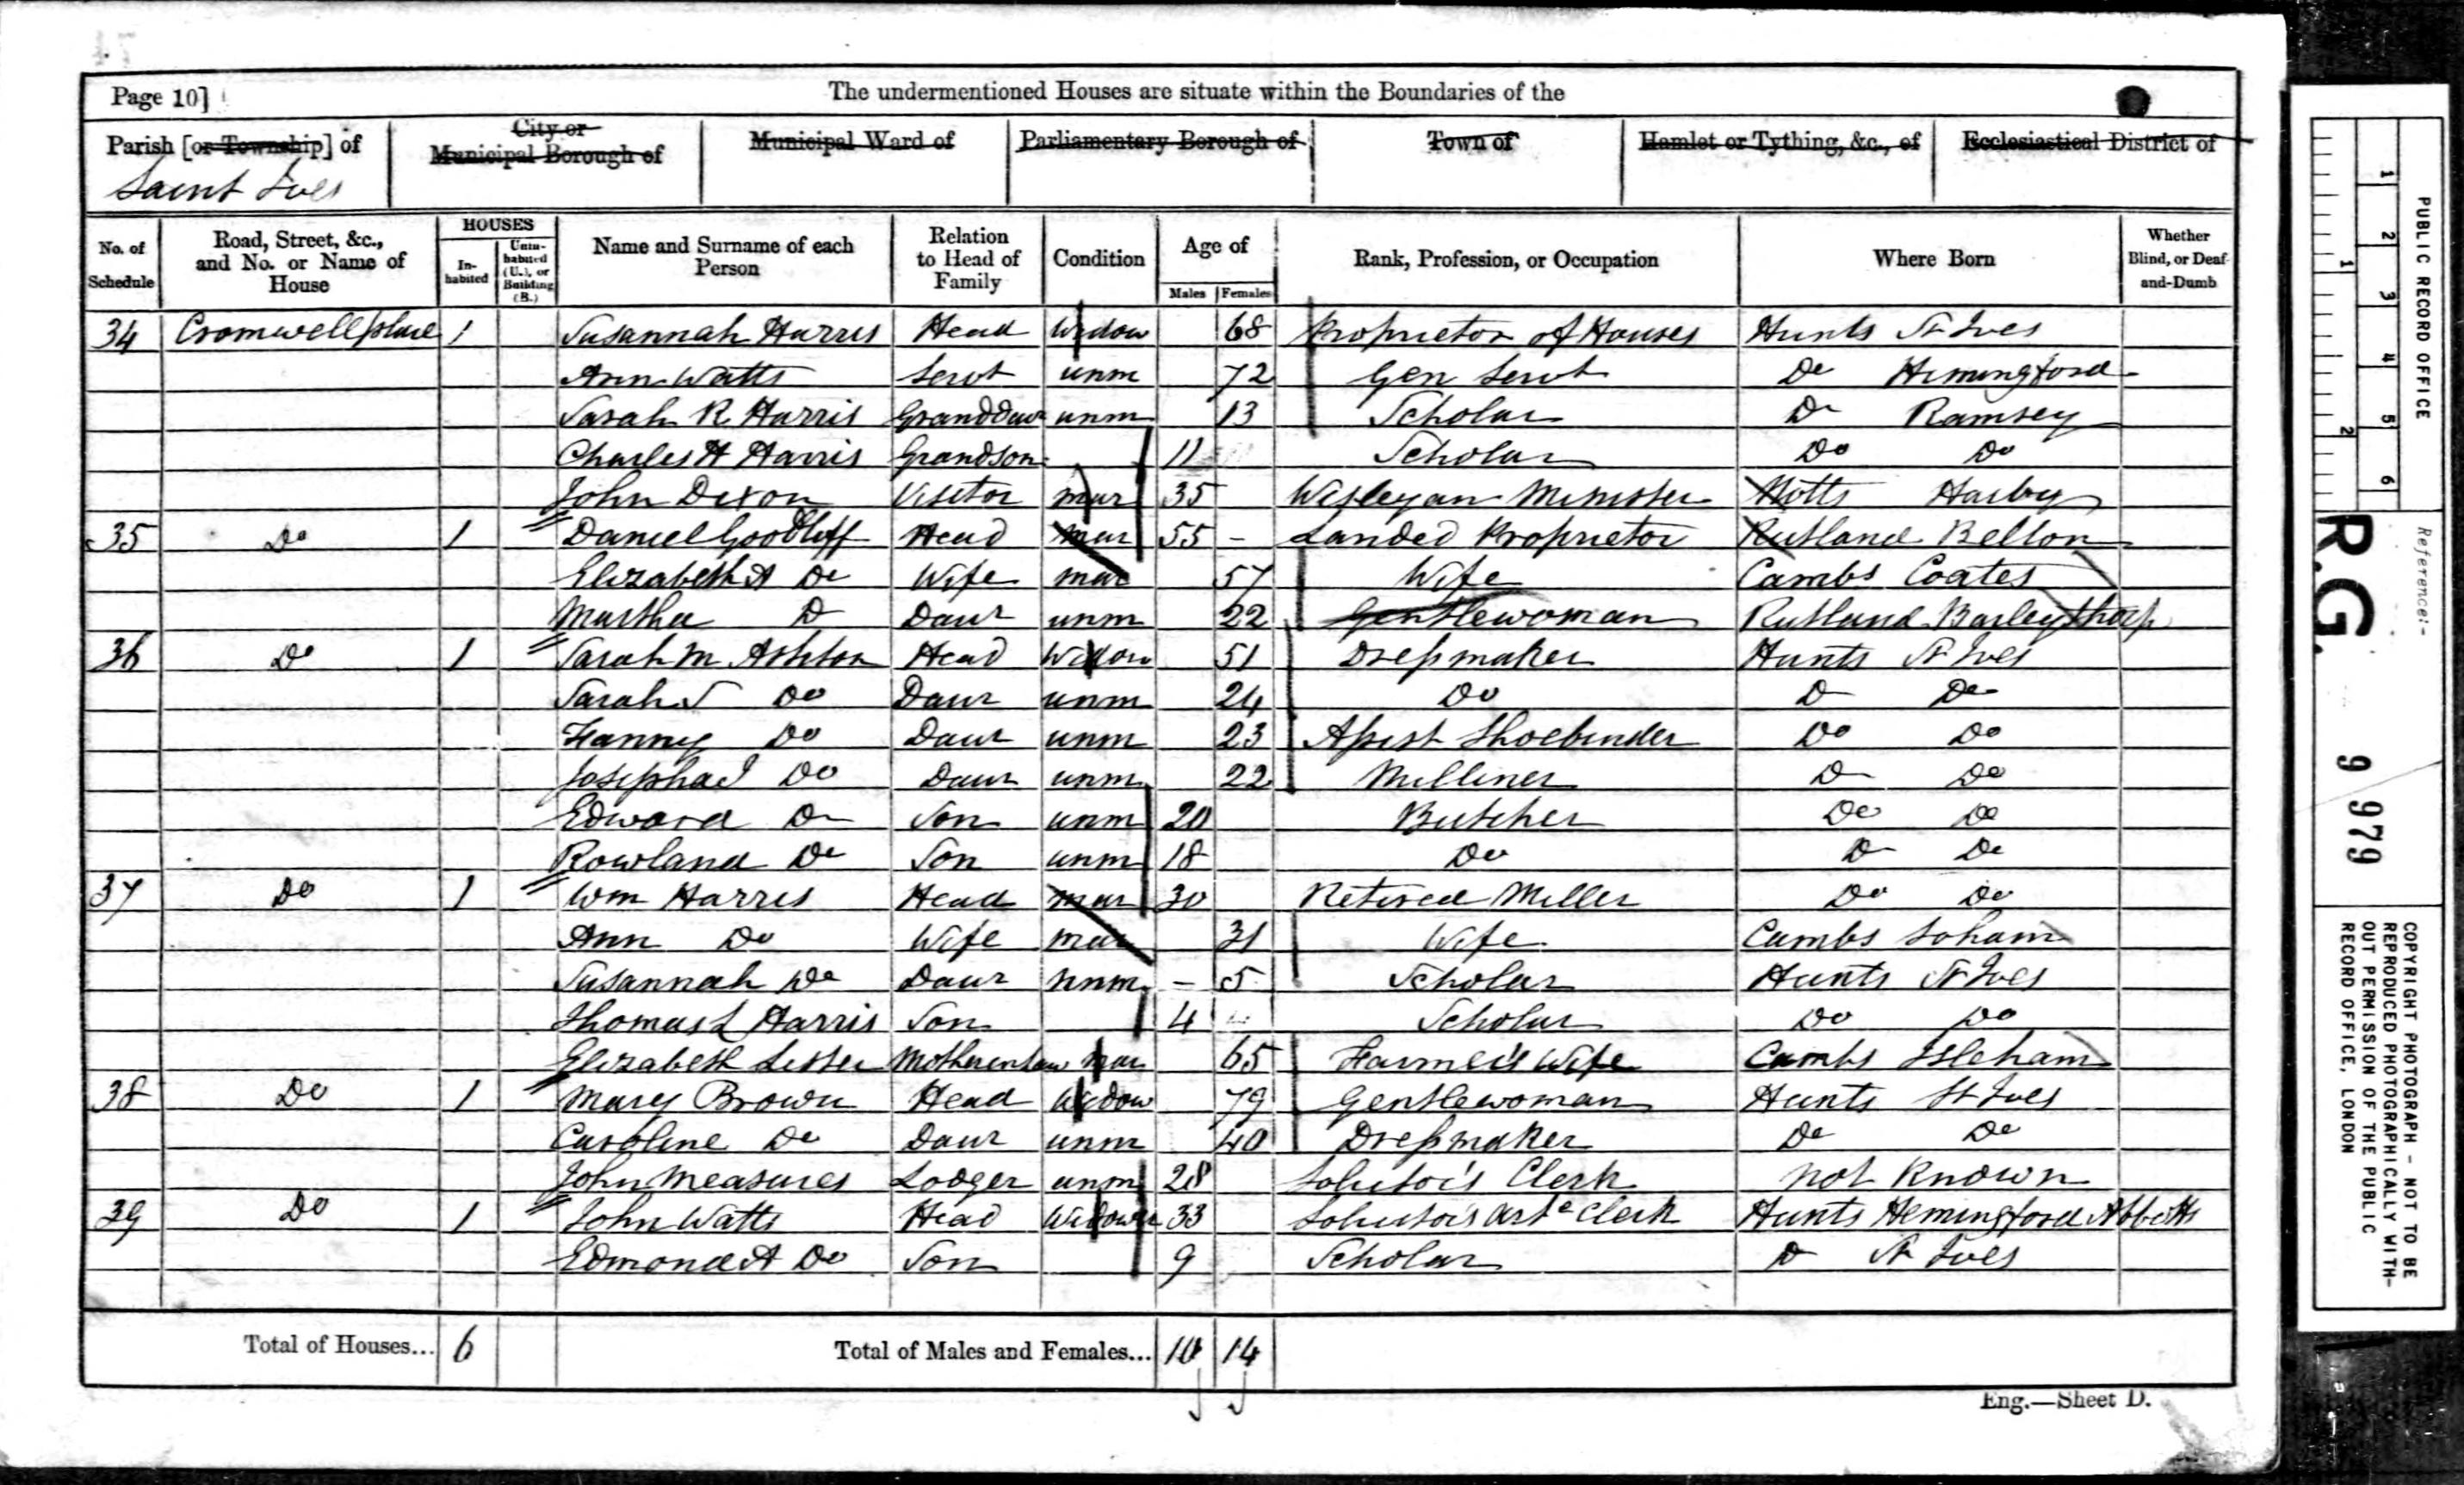 Page 10]
The undermentioned Houses are situate within the Boundaries of the
Parish [or Township] of
City or Municipal Borough of
Municipal Ward of
Parliamentary Borough of
Town of
Hamlet or Tything, &c., of
Ecclesiastical District of
Saint Ives
No. of Schedule
Road, Street, &c., and No. or Name of House
HOUSES
In-habited
Unin-habited (U.), or Building (B.)
Name and Surname of each Person
Relation to Head of Family
Condition
Age of
Males
Females
Rank, Profession, or Occupation
Where Born
Whether Blind, or Deaf-and-Dumb
34 Cromwell place 1 Susannah Harris Head Widow 68 Proprietor of Houses Hunts St Ives
Ann Watts Servt unm 72 Gen Servt Do Hemingford
Sarah R Harris Granddaur unm 13 Scholar Do Ramsey
Charles H Harris Grandson 11 Scholar Do Do
John Dixon Visitor mar 35 Wesleyan Minister Notts Harby
35 Do 1 Daniel Goodliff Head mar 55 - Landed Proprietor Rutland Belton
Elizabeth A Do Wife mar 57 Wife Cambs Coates
Martha Do Daur unm 22 Gentlewoman Rutland Barleythorp
36 Do 1 Sarah M Ashton Head Widow 51 Dressmaker Hunts St Ives
Sarah S Do Daur unm 24 Do Do Do
Fanny Do Daur unm 23 Assist Shoebinder Do Do
Josepha J Do Daur unm 22 Milliner Do Do
Edward Do Son unm 20 Butcher Do Do
Rowland Do Son unm 18 Do Do Do
37 Do 1 Wm Harris Head mar 30 Retired Miller Do Do
Ann Do Wife mar 31 Wife Cambs Soham
Susannah Do Daur unm - 5 Scholar Hunts St Ives
Thomas L Harris Son 4 Scholar Do Do
Elizabeth Lister Motherinlaw mar 65 Farmer's Wife Cambs Isleham
38 Do 1 Mary Brown Head Widow 79 Gentlewoman Hunts St Ives
Caroline Do Daur unm 40 Dressmaker Do Do
John Measures Lodger unm 28 Solicitor's Clerk not known
39 Do 1 John Watts Head Widower 33 Solicitors Arte Clerk Hunts Hemingford Abbotts
Edmond A Do Son 9 Scholar Do St Ives
Total of Houses... 6
Total of Males and Females... 10 14
Eng.—Sheet D.
PUBLIC RECORD OFFICE
1 2 3 4 5 6
1 2
Reference:-
R.G. 9 979
COPYRIGHT PHOTOGRAPH - NOT TO BE
REPRODUCED PHOTOGRAPHICALLY WITH-
OUT PERMISSION OF THE PUBLIC
RECORD OFFICE, LONDON